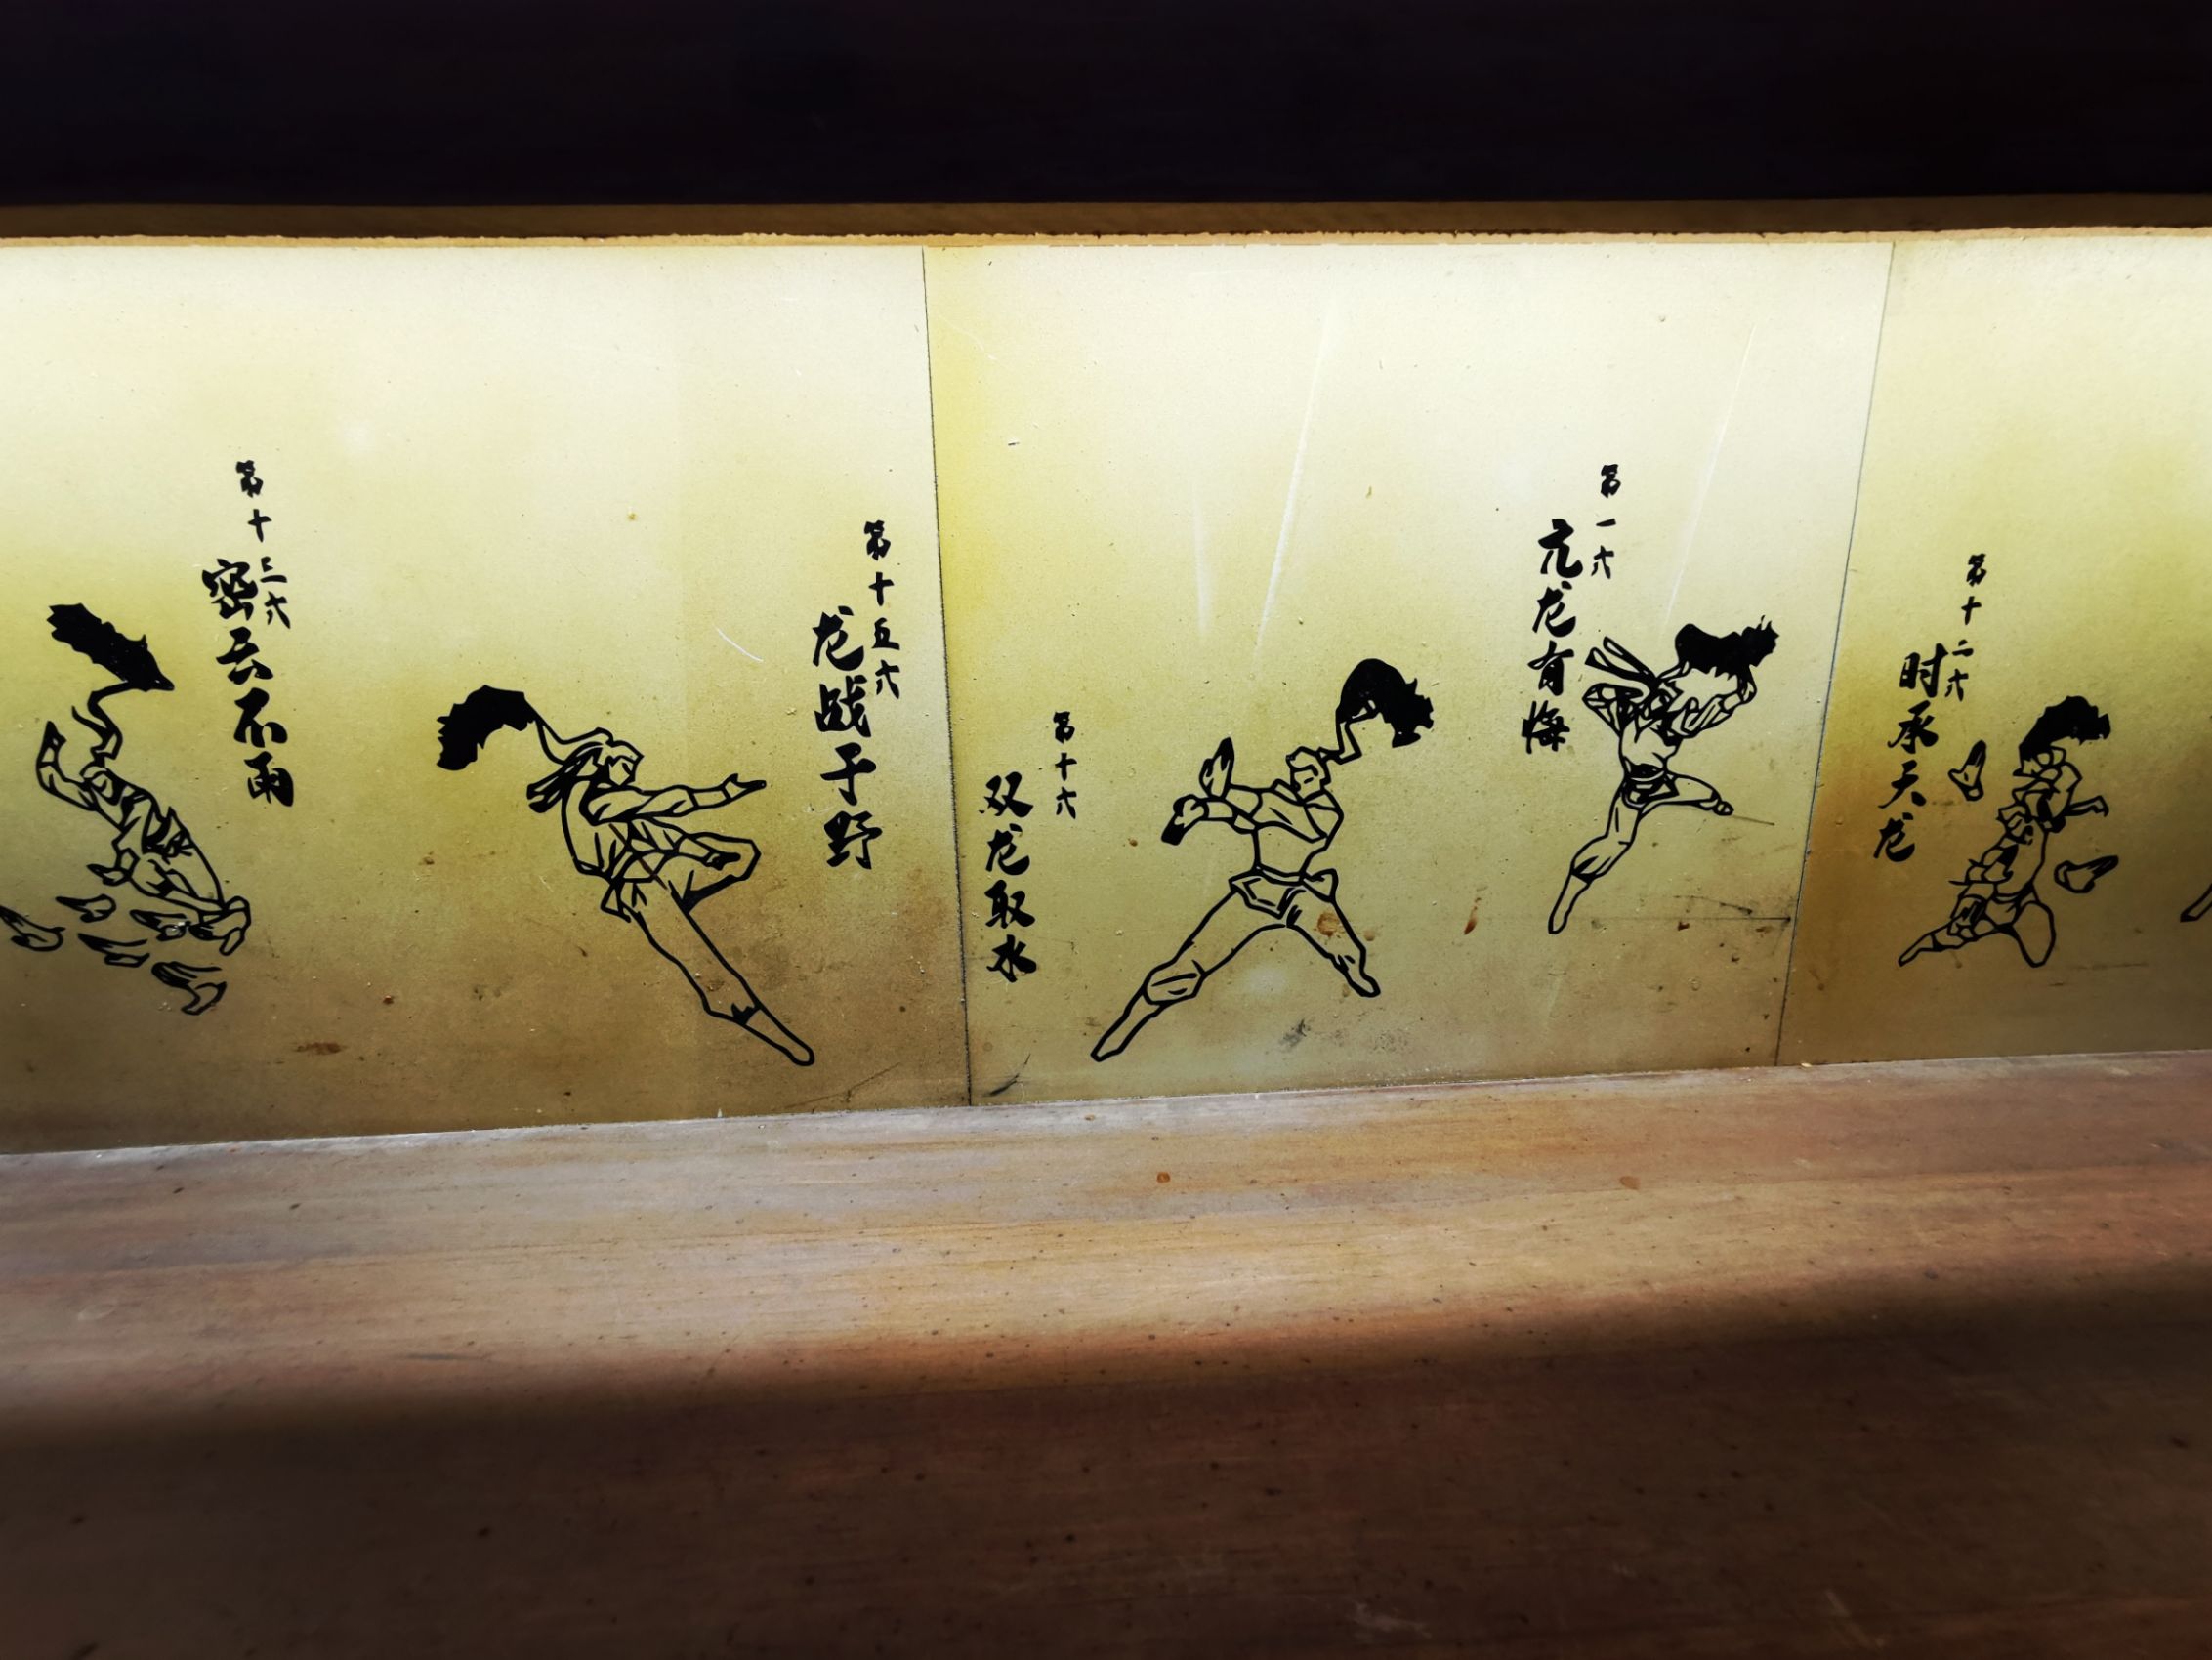 第十三六
密云不雨
第十五六
龙战于野
第十六
双龙取水
第一六
亢龙有悔
第十二六
时承天龙